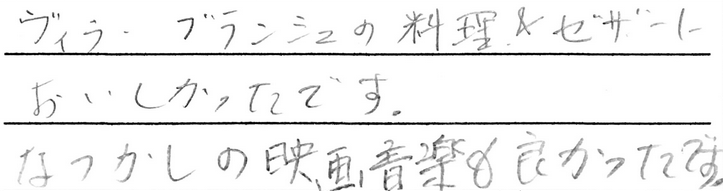 ヴィラ・ブランシュの料理&ゼザート
おいしかったです。
なつかしの映画音楽も良かったです。